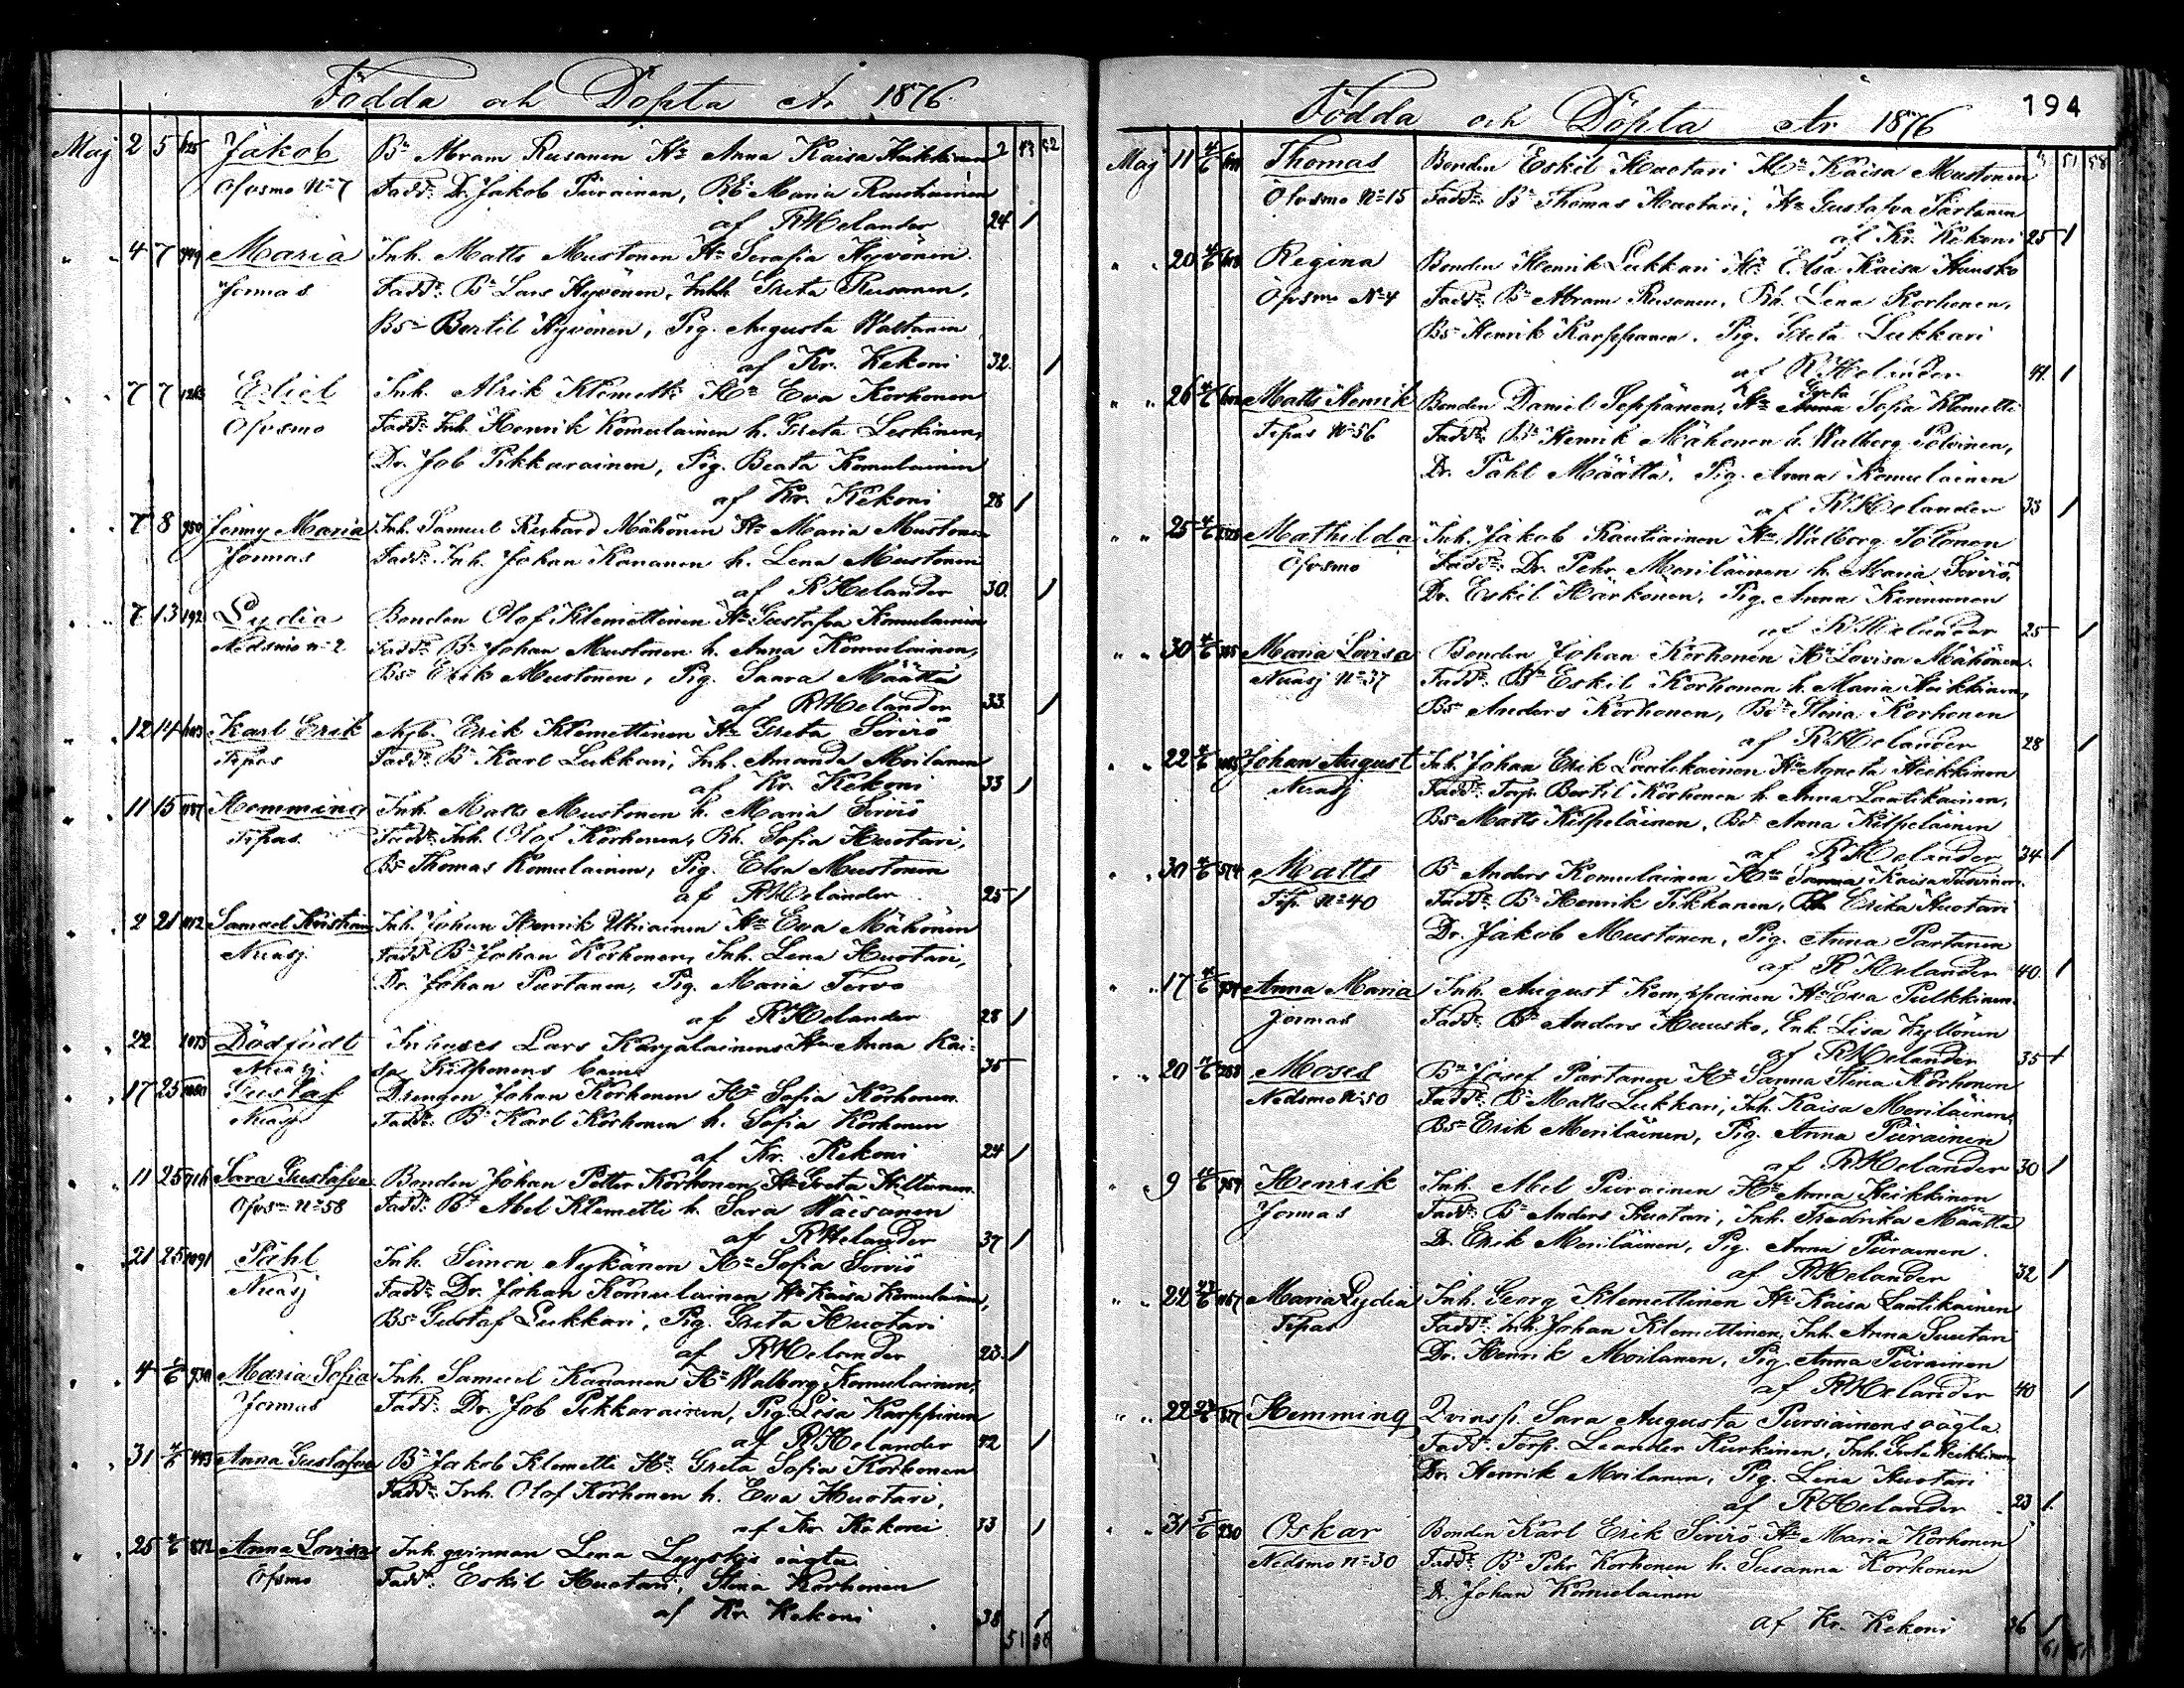 Födda och Döpta År 1876
Maj 2 5 Jakob Bn Abram Rusanen Hu Anna Kaisa Heikkinen 2
Öfvsmo No 7 Fadd: Dr. Jakob Piirainen, Maria Ruotiainen
af R Helander 24 1
" " 4 7 Maria Inh. Matts Mustonen Hu Serafia Hyvönen
Jormas Fadd: Bn Lars Hyvönen, Inhh. Greta Rusanen,
Bs Bertil Hyvönen, Pig. Augusta Waltanen
af Kr. Kekoni 32. 1
" " 7 7 Eliel Inh. Alrik Klemetti Hu Eva Korhonen
Öfvsmo Fadd: Inh. Henrik Komulainen h. Greta Leskinen,
Dr. Job Pikkarainen, Pig. Beata Komulainen
af Kr. Kekoni 28 1
" " 7 8 950 Jenny Maria Inh. Samuel Richard Mähönen Hu Maria Mustonen
Jormas Fadd: Inh. Johan Kananen h. Lena Mustonen
af R Helander 30. 1
" " 7 13 192 Lydia Bonden Olof Klemettinen Hu Gustafva Komulainen
Nedsmo No 2 Fadd: Bn Johan Mustonen h. Anna Komulainen,
Bs Erik Mustonen, Pig. Saara Määttä
af R Helander 33. 1
" " 12 14 Karl Erik Nyb. Erik Klemettinen Hu Greta Servio
Tipas Fadd: Bn Karl Lukkari, Inh. Amanda Moilanen
af Kr Kekoni 33 1
" " 11 15 1187 Hemming Inh. Matts Mustonen h. Maria Serviö
Tipas Fadd: Inh. Olof Korhonen, Bh. Sofia Huotari,
Bs Thomas Komulainen, Pig. Elsa Mustonen
af R Helander 25 1
" " 2 21 Samuel Kristian Inh. Johan Henrik Ukiainen Hu Eva Mähönen
Nuasj. Fadd: Bn Johan Korhonen, Inh. Lena Huotari,
Dr. Johan Partanen, Pig. Maria Tervo
af R Helander 28 1
" " 22 1073 Dödfödt Inhyses Lars Karjalainens Hu Anna Kai-
Nuasj. sa Kilponens barn 36
" " 17 25 Gustaf Drengen Johan Korhonen Hu Sofia Korhonen
Nuasj Fadd: Bn Karl Korhonen h. Sofia Korhonen
af Kr. Kekoni 24 1
" " 11 25 Sara Gustafva Bonden Johan Petter Korhonen Hu Greta Hiltunen
Öfvsm No 58 Fadd: Bn Abel Klemetti h. Sara Wäisänen
af R Helander 37 1
" " 21 25 1091 Påhl Inh. Simon Nykänen Hu Sofia Serviö
Nuasj Fadd: Dr. Johan Komulainen Hu Kaisa Komulainen,
Bs Gustaf Lukkari, Pig. Greta Huotari
af R Helander 23. 1
" " 4 930 Maria Sofia Inh. Samuel Kananen Hu Walborg Komulainen,
Jormas Fadd: Dr. Job Pikkarainen, Pig. Lisa Karppinen
af R Helander 42 1
" " 31 4/6 Anna Gustafva Bn Jakob Klemetti Hu Greta Sofia Korhonen
Fadd: Inh. Olof Korhonen h. Eva Huotari,
af Kr Kekoni 33 1
" " 25 4/6 Anna Lovisa Inh. qvinnan Lena Lyyskis oägta
Öfsmo Fadd: Eskil Huotari, Stina Korhonen
af Kr Kekoni 38 1
51
194
Födda och Döpta År 1876
Maj 11 4/6 Thomas Bonden Eskil Huotari Hu Kaisa Mustonen 51 58
Öfvsmo No 15 Fadd: Bn Thomas Huotari, Hu Gustafva Partanen
af Kr. Kekoni 25 1
" " 20 4/6 Regina Bonden Henrik Lukkari Hu Elsa Kaisa Huusko
Öfvsmo No 4 Fadd: Bn Abram Rusanen, Bh. Lena Korhonen,
Bs Henrik Karppanen. Pig. Greta Lukkari
af R Helander 41. 1
" " 26 4/6 Matts Henrik Bonden Daniel Seppänen, Hu Greta Sofia Klemetti
Tipas No 56 Fadd: Bn Henrik Mähönen h. Walborg Polvinen,
Dr. Påhl Määttä, Pig. Anna Komulainen
af R Helander 33 1
" " 25 4/6 Mathilda Inh. Jakob Rautiainen Hu Walborg Tolonen
Öfvsmo Fadd: Dr. Pehr Meriläinen h. Maria Serviö,
Dr. Eskil Härkönen, Pig. Anna Kinnunen
af R Helander 25 1
" " 30 4/6 Maria Lovisa Bonden Johan Korhonen Hu Lovisa Mähönen
Nuasj No 37 Fadd: Bn Eskil Korhonen h. Maria Heikkinen,
Bs Anders Korhonen, Bd Stina Korhonen
af R Helander 28 1
" " 22 4/6 Johan August Inh. Johan Erik Laatikainen Hu Agneta Heikkinen
Nuasj Fadd: Torp. Bertil Korhonen h. Anna Laatikainen,
Bs Matts Kilpeläinen, Bd Anna Kilpeläinen
af R Helander 34. 1
" " 30 4/6 574 Matts Bn Anders Komulainen Hu Kaisa
Tip. No 40 Fadd: Bn Henrik Pikkanen, Erika Huotari
Dr. Jakob Mustonen, Pig. Anna Partanen
af R Helander 40. 1
" " 17 4/6 Anna Maria Inh. August Kemppainen Hu Eva Pulkkinen
Jormas Fadd: Bn Anders Huusko, Enk. Lisa Kyllönen
af R Helander 35 1
" " 20 Moses Bn Josef Partanen Hu Sanna Stina Korhonen
Nedsmo No 50 Fadd: Bn Matts Lukkari, Inh. Kaisa Meriläinen,
Bs Erik Meriläinen, Pig. Anna Piirainen
af R Helander 30 1
" " 9 Henrik Inh. Abel Piirainen Hu Anna Heikkinen
Jormas Fadd: Bn Anders Huotari, Inh. Fredrika Määttä
Dr. Erik Meriläinen, Pig. Anna Piirainen.
af R Helander 32 1
" " 24 Maria Lydia Inh. Georg Klemettinen Hu Kaisa Laatikainen
Tipas Fadd: Inh. Johan Klemettinen, Inh. Anna Suutari
Dr. Henrik Moilanen, Pig. Anna Piirainen
af R Helander 40 1
" " 22 Hemming Qvinsp. Sara Augusta Pursiainens oägta
Fadd: Torp. Leander Kurkinen, Inh. Greta Heikkinen
Dr. Henrik Moilanen, Pig. Lena Huotari
af R Helander 23 1
" " 31 5/6 230 Oskar Bonden Karl Erik Serviö Hu Maria Korhonen
Nedsmo No 30 Fadd: Bn Pehr Korhonen h. Susanna Korhonen
Dr. Johan Komulainen
af Kr. Kekoni 36 1
61